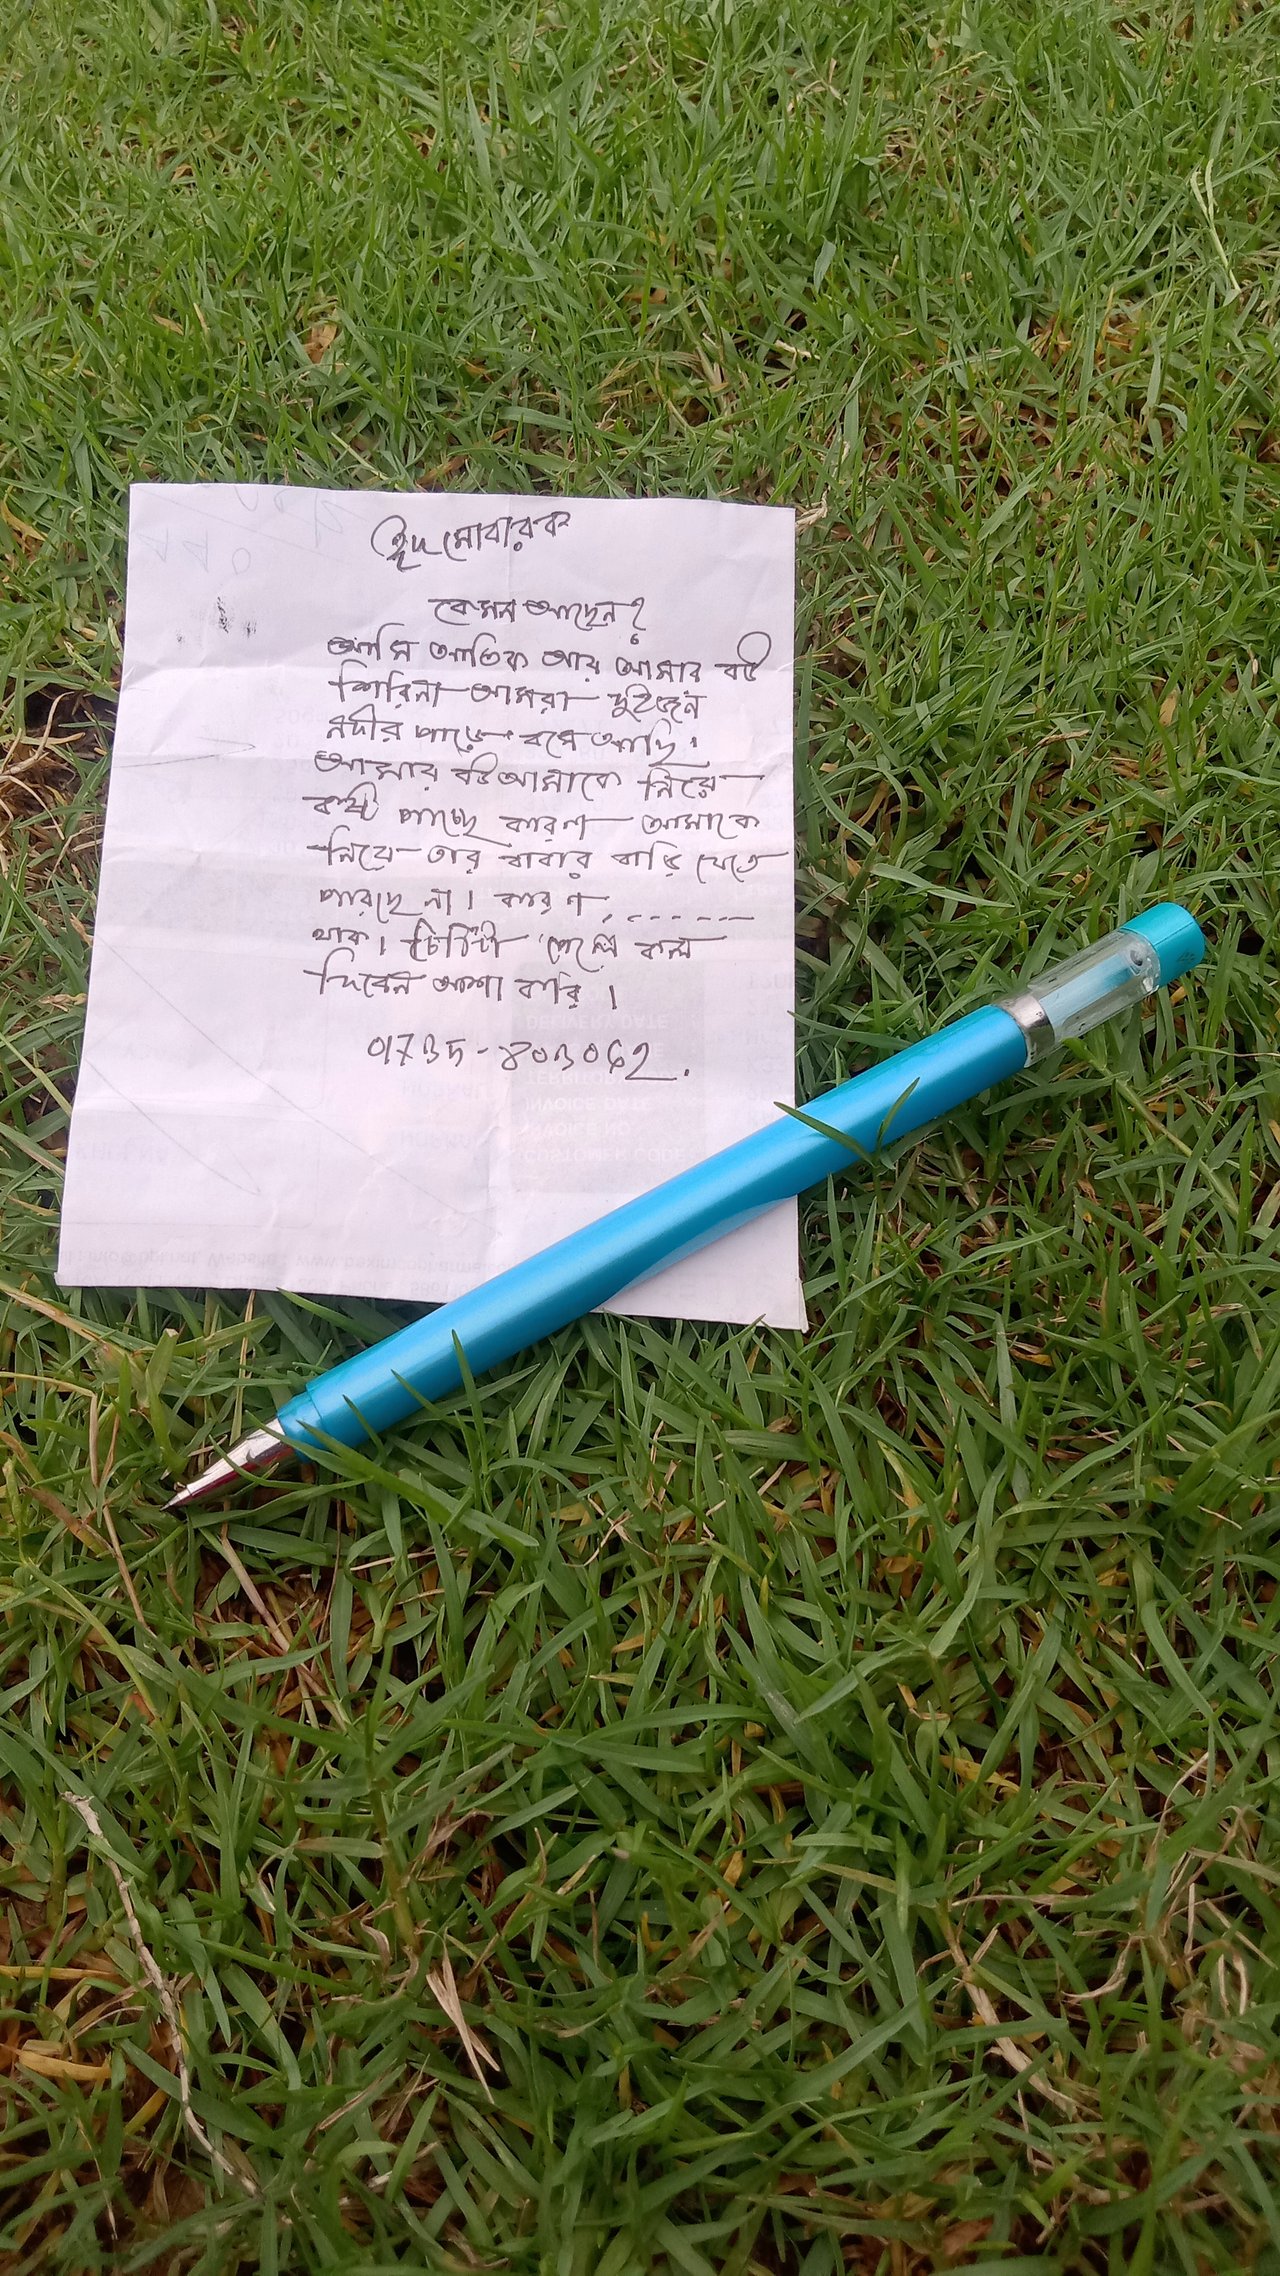 ঈদ মোবারক
কেমন আছেন?
আমি আতিক আর আমার বউ
শিরিনা আমরা দুইজন
নদীর পাড়ে বসে আছি।
আমার বউ আমাকে নিয়ে
কষ্ট পাচ্ছে কারণ আমাকে
নিয়ে তার বাবার বাড়ি যেতে
পারছে না। কারণ .......
থাক। চিঠিটা পেলে কল
দিবেন আশা করি।
01735-803062.
DELIVERY DATE
TERRITORY
INVOICE DATE
INVOICE NO
CUSTOMER CODE